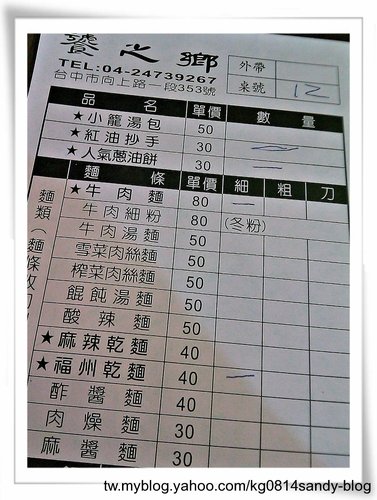 饕之鄉
外帶
TEL:04-24739267
台中市向上路一段353號
桌號 12
品名 單價 數量
★小籠湯包 50
★紅油抄手 30
★人氣蔥油餅 30 一
麵條 單價 細 粗 刀
★牛肉麵 80 一
牛肉細粉 80 (冬粉)
牛肉湯麵 50
雪菜肉絲麵 50
榨菜肉絲麵 50
餛飩湯麵 50
酸辣麵 50
★麻辣乾麵 40
★福州乾麵 40 一
酢醬麵 40
肉燥麵 30
麻醬麵 30
麵類(麵條
tw.myblog.yahoo.com/kg0814sandy-blog